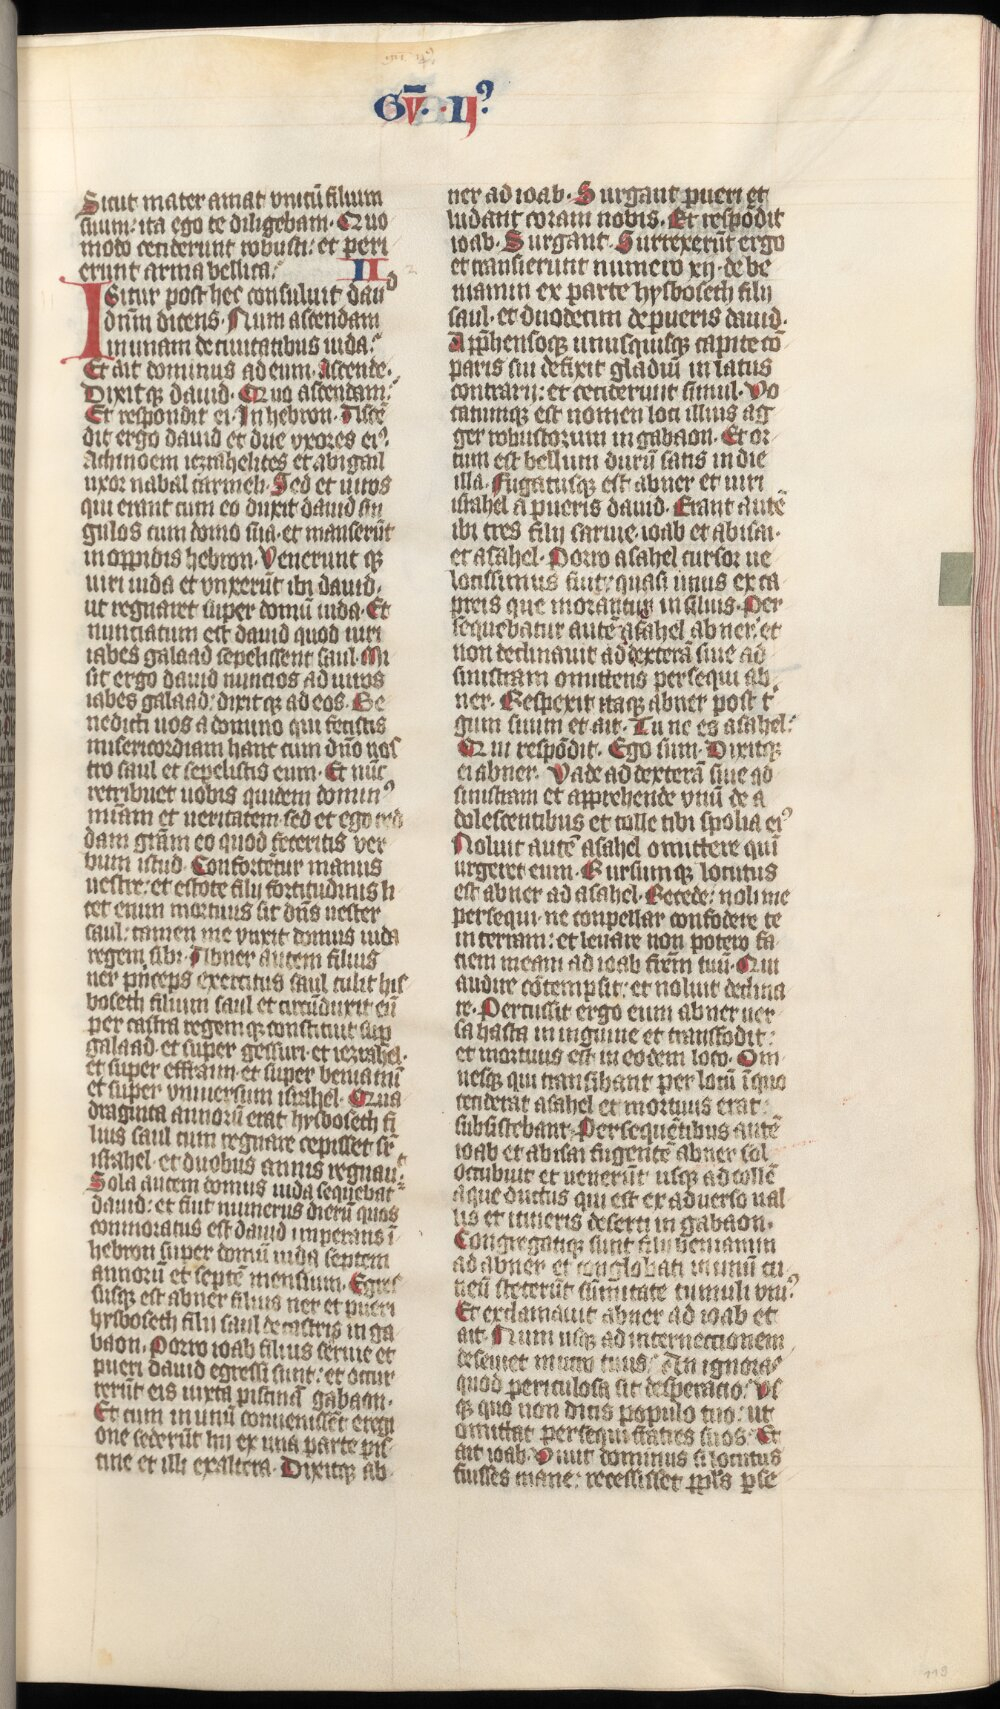 Gῡ. IJꝰ
Sicut mater amat vnicū filium
suum: ita ego te diligebam. Quo
modo ceciderunt robusti: et peri
erunt arma bellica. II
Igitur post hec consuluit dauid
dn̄m dicens. Num ascendam
in unam de ciuitatibus iuda.
Et ait dominus ad eum. Ascende.
Dixitqꝫ dauid. Quo ascendam.
Et respondit ei. In hebron. Ascē
dit ergo dauid et due vxores eiꝰ.
Achinoem iezrahelites et abigail
uxor nabal carmeli. Sed et uiros
qui erant cum eo duxit dauid sin
gulos cum domo sua. et manserūt
in oppidis hebron. Venerunt qꝫ
uiri iuda et vnxerūt ibi dauid.
ut regnaret super domū iuda. Et
nunciatum est dauid quod uiri
iabes galaad sepelissent saul. Mi
sit ergo dauid nuncios ad uiros
iabes galaad: dixitqꝫ ad eos. Be
nedicti uos a domino qui fecistis
misericordiam hanc cum dn̄o vos
tro saul et sepelistis eum. Et nūc
retribuet uobis quidem dominꝰ
miām et ueritatem. sed et ego red
dam grām eo quod feceritis ver
bum istud. Confortētur manus
uestre: et estote filij fortitudinis li
cet enim mortuus sit dn̄s uester
saul: tamen me vnxit domus iuda
regem sibi. Abner autem filius
ner princeps exercitus saul tulit his
boseth filium saul et circūduxit eū
per castra regemqꝫ constituit sup
galaad. et super gessuri. et iezrahel.
et super effraim. et super beniamī
et super vniuersum israhel. Qua
draginta annorū erat hysboseth fi
lius saul cum regnare cepisset sr̄
israhel. et duobus annis regnauit
Sola autem domus iuda sequebatr
dauid: et fuit numerus dierū quos
commoratus est dauid imperans ī
hebron super domū iuda septem
annorū et septē mensium. Egres
susqꝫ est abner filius ner et pueri
hysboseth filij saul de castris in ga
baon. Porro ioab filius seruie et
pueri dauid egressi sunt: et occur
rerūt eis iuxta piscinā gabaon.
Et cum in unū conuenissēt e regi
one sederūt hij ex una parte pis
cine et illi ex altera. Dixitqꝫ ab
ner ad ioab. Surgant pueri et
ludant coram nobis. Et respōdit
ioab. Surgant. Surrexerūt ergo
et transierunt numero xij. de be
niamin ex parte hysboseth filij
saul. et duodecim de pueris dauid.
Appr̄hensoqꝫ unusquisqꝫ capite cō
paris sui defixit gladiū in latus
contrarij: et ceciderunt simul. Vo
catumqꝫ est nomen loci illius ag
ger robustorum in gabaon. Et or
tum est bellum durū satis in die
illa. Fugatusqꝫ est abner et uiri
israhel a pueris dauid. Erant autē
ibi tres filij saruie. ioab et abisai.
et asahel. Porro asahel cursor ue
locissimus fuit: quasi unus ex ca
preis que morantur in siluis. Per
sequebatur autē asahel abner. et
non declinauit ad dexterā siue ad
sinistram omittens persequi ab
ner. Respexit itaqꝫ abner post t
gum suum et ait. Tu ne es asahel.
Qui respōdit. Ego sum. Dixitqꝫ
ei abner. Vade ad dexterā siue ad
sinistram et apprehende vnū de a
dolescentibus et tolle tibi spolia eiꝰ
Noluit autē asahel omittere quī
urgeret eum. Rursumqꝫ locutus
est abner ad asahel. Recede: noli me
persequi. ne conpellar confodere te
in terram: et leuare non potero fa
ciem meam ad ioab frēm tuū. Qui
audire cōtempsit: et noluit declina
re. Percussit ergo eum abner uer
sa hasta in inguine et transfodit:
et mortuus est in eodem loco. Om
nesqꝫ qui transibant per locū ī quo
ceciderat asahel et mortuus erat:
subsistebant. Persequētibus autē
ioab et abisai fugientē abner sol
occubuit et uenerūt usqꝫ ad collē
aque ductus qui est ex aduerso ual
lis et itineris deserti in gabaon.
Congregatiqꝫ sunt filij beniamin
ad abner et conglobati in unū cu
neū steterūt sūmitate tumuli vniꝰ
Et exclamauit abner ad ioab et
ait. Num usqꝫ ad internecionem
deseuiet mucro tuus. An ignoras
quod periculosa sit desperacio. Vs
qꝫ quo non dicis populo tuo. ut
omittat persequi fratres suos. Et
ait ioab. Viuit dominus si locutus
fuisses mane: recessisset ppl̄s ꝑse
119